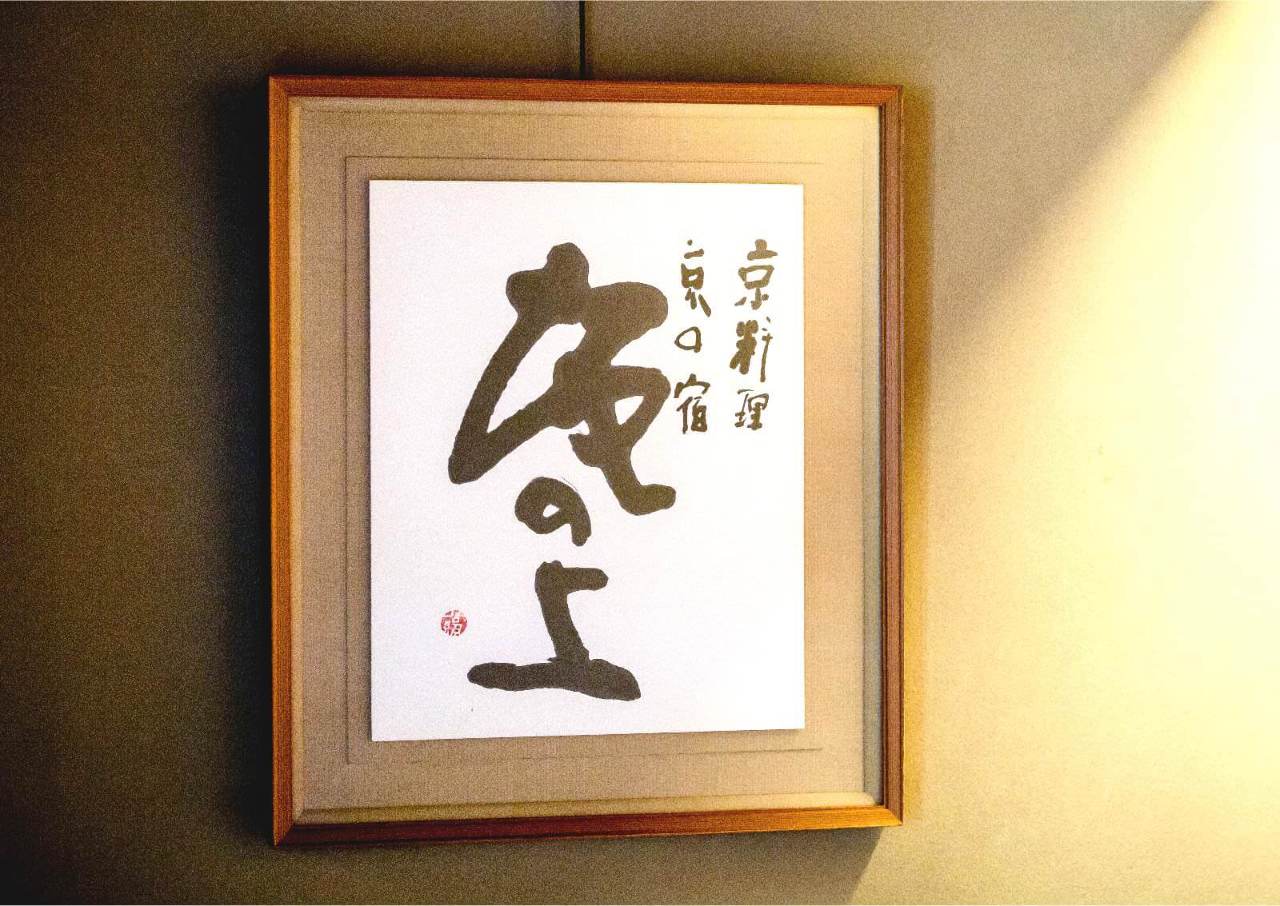 京料理
京の宿
坂の上